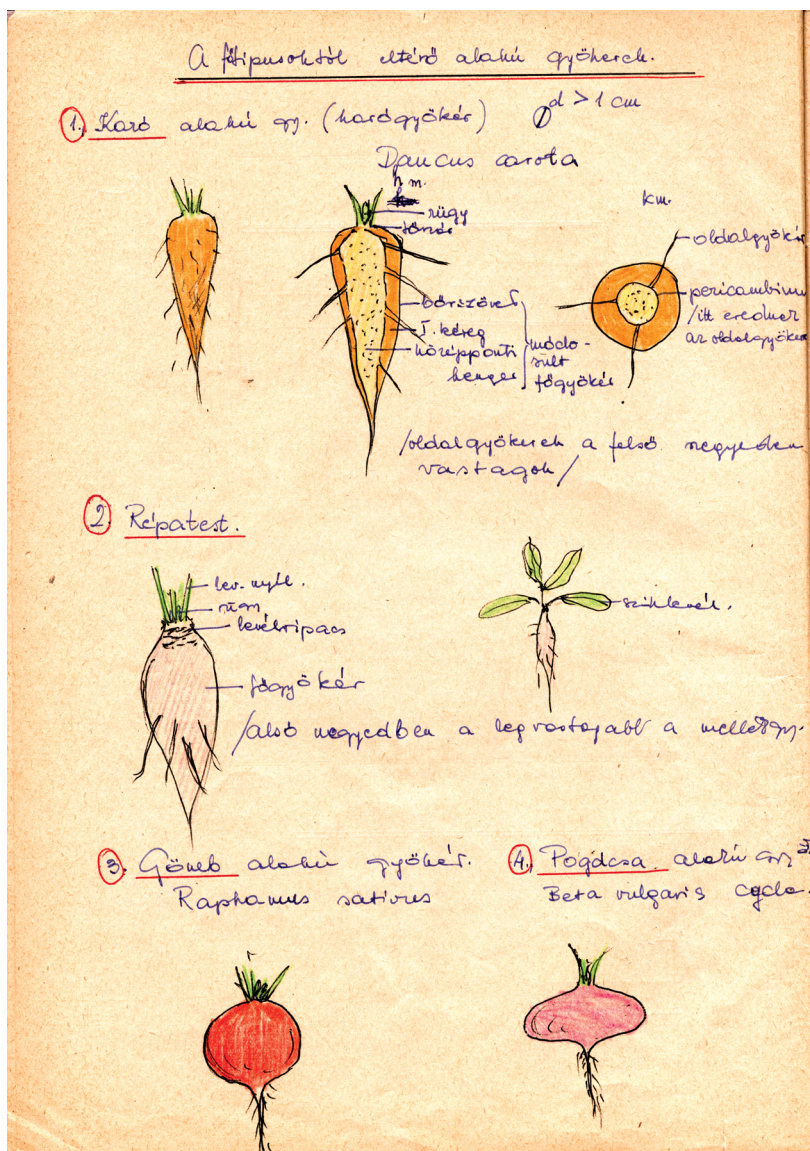 A főtipusoktól eltérő alakú gyökerek.
1. Karó alakú gy. (karógyökér) d > 1 cm
Daucus carota
h.m.
rügy
törzs
bőrszövet
I. kéreg
középponti
henger
módo-
sult
főgyökér
km.
oldalgyökér
pericambium
/itt erednek
az oldalgyökerek
/oldalgyökerek a felső negyedben
vastagok/
2. Répatest.
lev. nyél.
rügy
levélripacs
főgyökér
sziklevél.
/alsó negyedben a legvastagabb a mellékgy.
3. Gömb alakú gyökér.
Raphanus sativus
4. Pogácsa alakú
Beta vulgaris cycla.